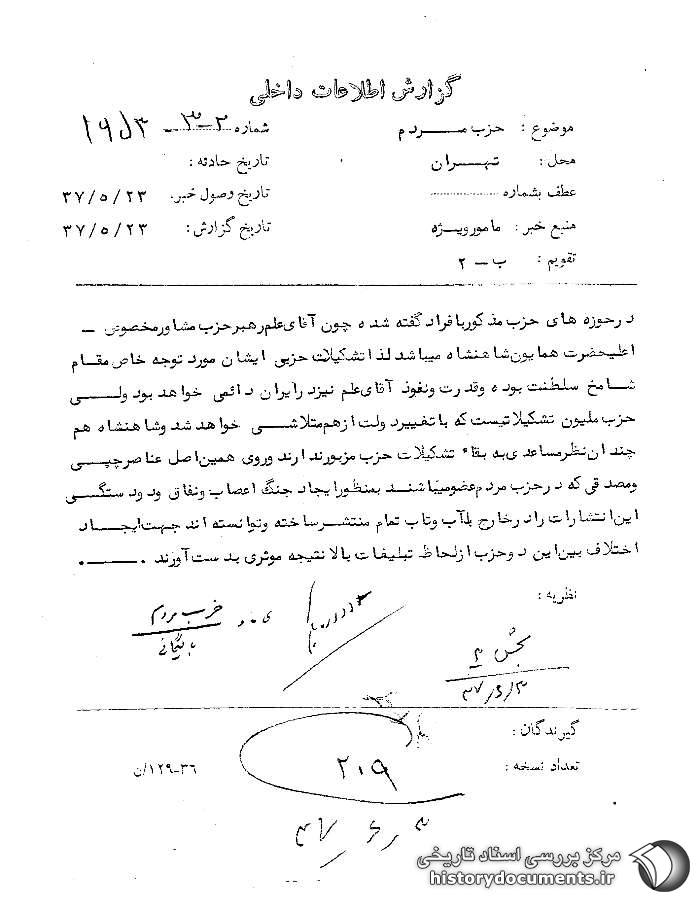 گزارش اطلاعات داخلی
موضوع : حزب مـــردم
شماره ۲ـ۳ـ ۱۹۵۳
محل : تهـــران
تاریخ حادثه :
عطف بشماره
تاریخ وصول خبر. ۳۷/۵/۲۳
منبع خبر : مامور ویژه
تاریخ گزارش : ۳۷/۵/۲۳
تقویم : ب ـ ۲
در حوزه های حزب مذکور با فراد گفته شده چون آقای علم رهبر حزب مشاور مخصوص ـ
اعلیحضرت همایون شاهنشاه میباشد لذا تشکیلات حزبی ایشان مورد توجه خاص مقام
شامخ سلطنت بوده وقدرت ونفوذ آقای علم نیز در ایران دائمی خواهد بود ولـــی
حزب ملیون تشکیلاتیست که با تغییر دولت از هم متلاشـی خواهد شد وشاهنشاه هم
چندان نظر مساعدی به بقاء تشکیلات حزب مزبور ندارند وروی همین اصل عناصر چپـی
ومصدقی که در حزب مردم عضو میباشند بمنظور ایجاد جنگ اعصاب ونفاق ودودستگـی
این انتشارات را در خارج با آب وتاب تمام منتشر ساخته وتوانسته اند جهت ایجـاد
اختلاف بین این دو حزب از لحاظ تبلیغات بالا نتیجه موثری بدست آورند .
نظریه :
حزب مردم
بایگانی
بخش ۴
۳۷/۶/۳
گیرندگان :
تعداد نسخه :
۱۲۹-۳۶/ن
۲۰۹
۳۷/۶/۳
مرکز بررسی اسناد تاریخی
historydocuments.ir